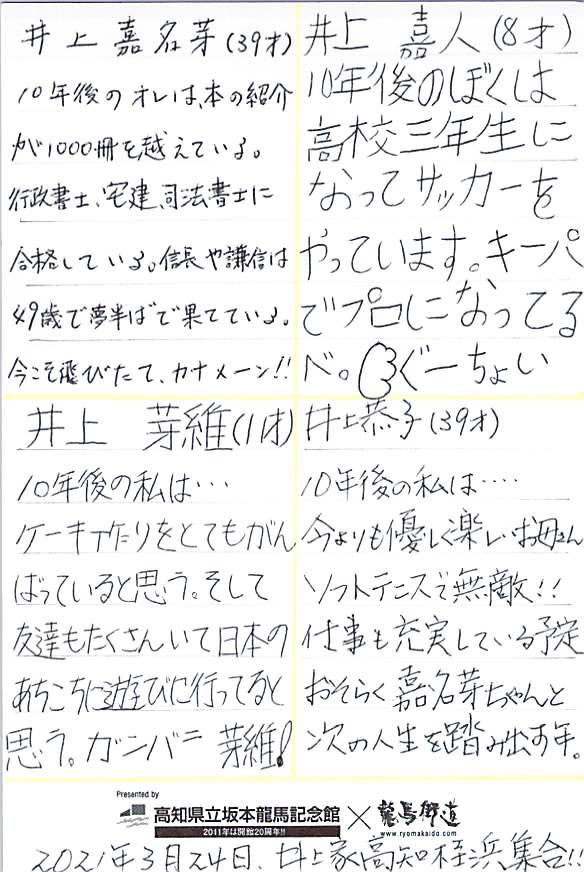 井上 嘉名芽(39才)
10年後のオレは、本の紹介
が1000冊を越えている。
行政書士、宅建、司法書士に
合格している。信長や謙信は
49歳で夢半ばで果てている。
今こそ飛びたて、カナメーン!!
井上 嘉人(8才)
10年後のぼくは
高校三年生に
なってサッカーを
やっています。キーパ
でプロになってる
べ。ぐーちょい
井上 芽維(11才)
10年後の私は…
ケーキ作りをとてもがん
ばっていると思う。そして
友達もたくさんいて日本の
あちこちに遊びに行ってると
思う。ガンバニ 芽維!
井上恭子(39才)
10年後の私は‥‥
今よりも優しく楽しいお母さん
ソフトテニスで無敵!!
仕事も充実している予定
おそらく嘉名芽ちゃんと
次の人生を踏み出す年。
Presented by
高知県立坂本龍馬記念館
2011年は開館20周年!!
×
龍馬街道
www.ryomakaido.com
2021年3月24日、井上家高知桂浜集合!!